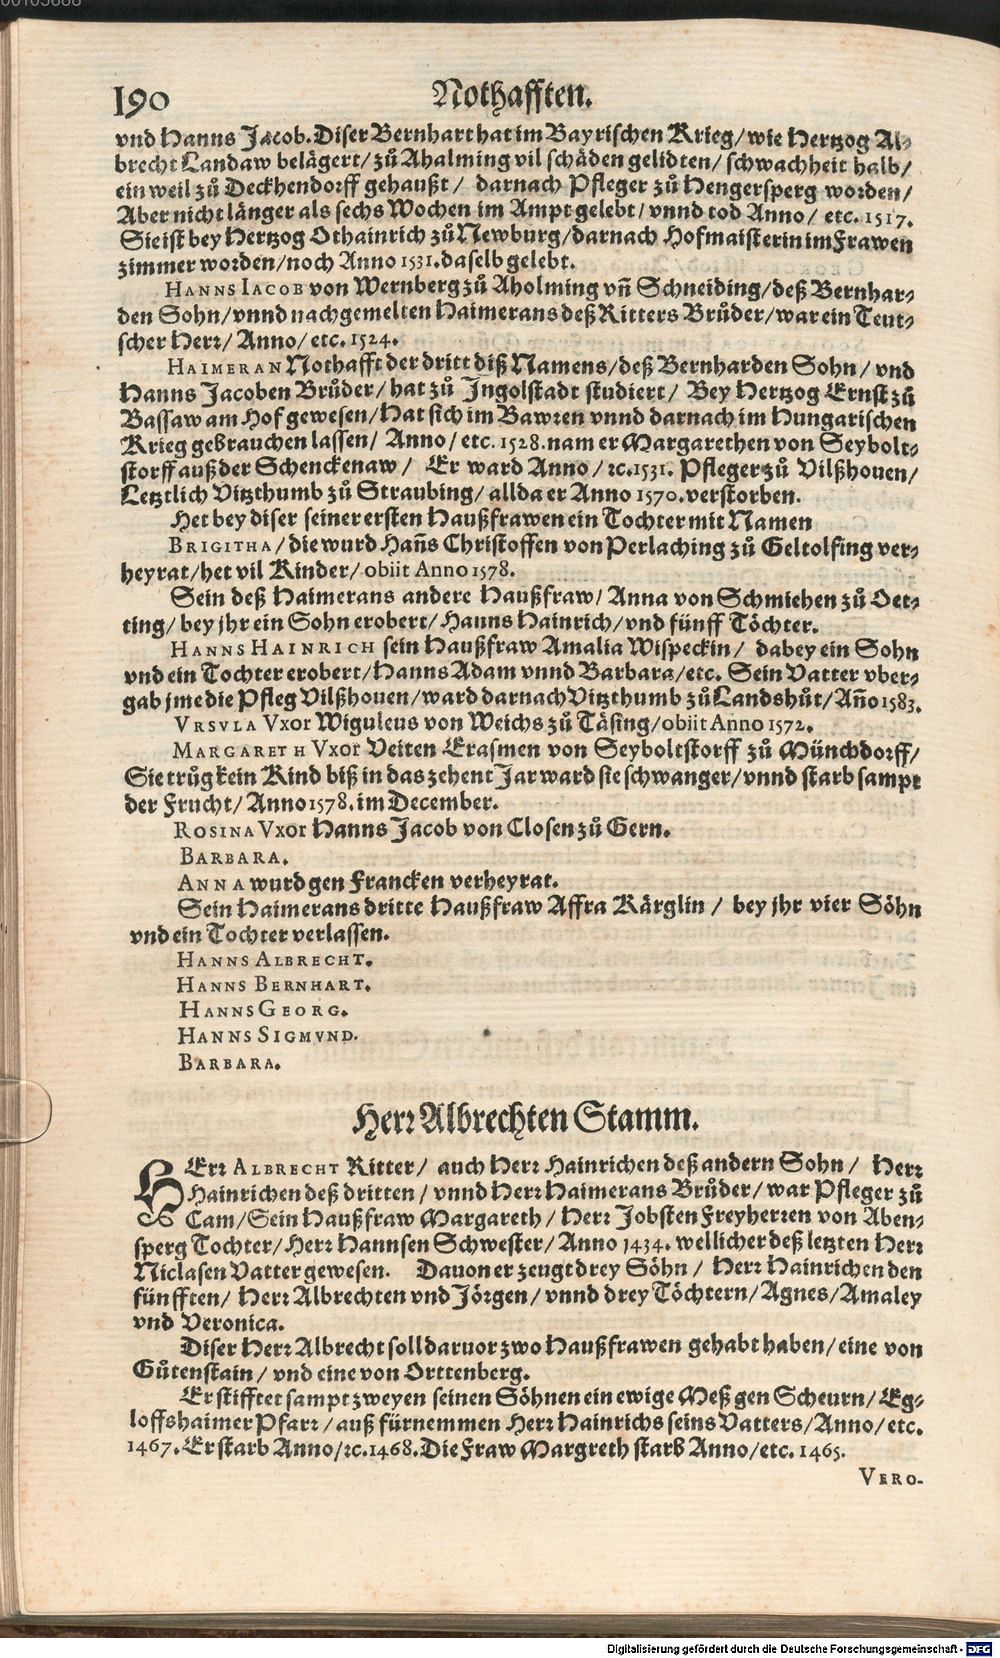 190 Nothafften.
vnd Hanns Jacob. Diser Bernhart hat im Bayrischen Krieg/ wie Hertzog Al-
brecht Landaw belägert/ zů Ahalming vil schäden gelidten/ schwachheit halb/
ein weil zů Deckhendorff gehaußt/ darnach Pfleger zů Hengersperg worden/
Aber nicht länger als sechs Wochen im Ampt gelebt/ vnnd tod Anno/ etc. 1517.
Sie ist bey Hertzog Othainrich zů Newburg/ darnach Hofmaisterin im Frawen
zimmer worden/ noch Anno 1531. daselb gelebt.
HANNS IACOB von Wernberg zů Aholming vñ Schneiding/ deß Bernhar-
den Sohn/ vnnd nachgemelten Haimerans deß Ritters Brůder/ war ein Teut-
scher Herr/ Anno/ etc. 1524.
HAIMERAN Nothafft der dritt diß Namens/ deß Bernharden Sohn/ vnd
Hanns Jacoben Brůder/ hat zů Ingolstadt studiert/ Bey Hertzog Ernst zů
Bassaw am Hof gewesen/ Hat sich im Bawren vnnd darnach im Hungarischen
Krieg gebrauchen lassen/ Anno/ etc. 1528. nam er Margarethen von Seybolt-
storff auß der Schenckenaw/ Er ward Anno/ ꝛc. 1531. Pfleger zů Vilßhouen/
Letztlich Vitzthumb zů Straubing/ allda er Anno 1570. verstorben.
Het bey diser seiner ersten Haußfrawen ein Tochter mit Namen
BRIGITHA/ die wurd Hañs Christoffen von Perlaching zů Geltolfing ver-
heyrat/ het vil Kinder/ obiit Anno 1578.
Sein deß Haimerans andere Haußfraw/ Anna von Schmiehen zů Oet-
ting/ bey jhr ein Sohn erobert/ Hanns Hainrich/ vnd fünff Töchter.
HANNS HAINRICH sein Haußfraw Amalia Wispeckin/ dabey ein Sohn
vnd ein Tochter erobert/ Hanns Adam vnnd Barbara/ etc. Sein Vatter vber-
gab jme die Pfleg Vilßhouen/ ward darnach Vitzthumb zů Landshůt/ Año 1583.
VRSVLA Vxor Wiguleus von Weichs zů Täsing/ obiit Anno 1572.
MARGARETH Vxor Veiten Erasmen von Seyboltstorff zů Münchdorff/
Sie trůg kein Kind biß in das zehent Jar ward sie schwanger/ vnnd starb sampt
der Frucht/ Anno 1578. im December.
ROSINA Vxor Hanns Jacob von Closen zů Gern.
BARBARA.
ANNA wurd gen Francken verheyrat.
Sein Haimerans dritte Haußfraw Affra Kärglin/ bey jhr vier Söhn
vnd ein Tochter verlassen.
HANNS ALBRECHT.
HANNS BERNHART.
HANNS GEORG.
HANNS SIGMVND.
BARBARA.
Herr Albrechten Stamm.
HErr ALBRECHT Ritter/ auch Herr Hainrichen deß andern Sohn/ Herr
Hainrichen deß dritten/ vnnd Herr Haimerans Brůder/ war Pfleger zů
Cam/ Sein Haußfraw Margareth/ Herr Jobsten Freyherren von Aben-
sperg Tochter/ Herr Hannsen Schwester/ Anno 1434. wellicher deß letzten Herr
Niclasen Vatter gewesen. Dauon er zeugt drey Söhn/ Herr Hainrichen den
fünfften/ Herr Albrechten vnd Jörgen/ vnnd drey Töchtern/ Agnes/ Amaley
vnd Veronica.
Diser Herr Albrecht soll daruor zwo Haußfrawen gehabt haben/ eine von
Gůtenstain/ vnd eine von Orttenberg.
Er stifftet sampt zweyen seinen Söhnen ein ewige Meß gen Scheurn/ Eg-
loffshaimer Pfarr/ auß fürnemmen Herr Hainrichs seins Vatters/ Anno/ etc.
1467. Er starb Anno/ ꝛc. 1468. Die Fraw Margreth starb Anno/ etc. 1465.
VERO-
Digitalisierung gefördert durch die Deutsche Forschungsgemeinschaft - DFG